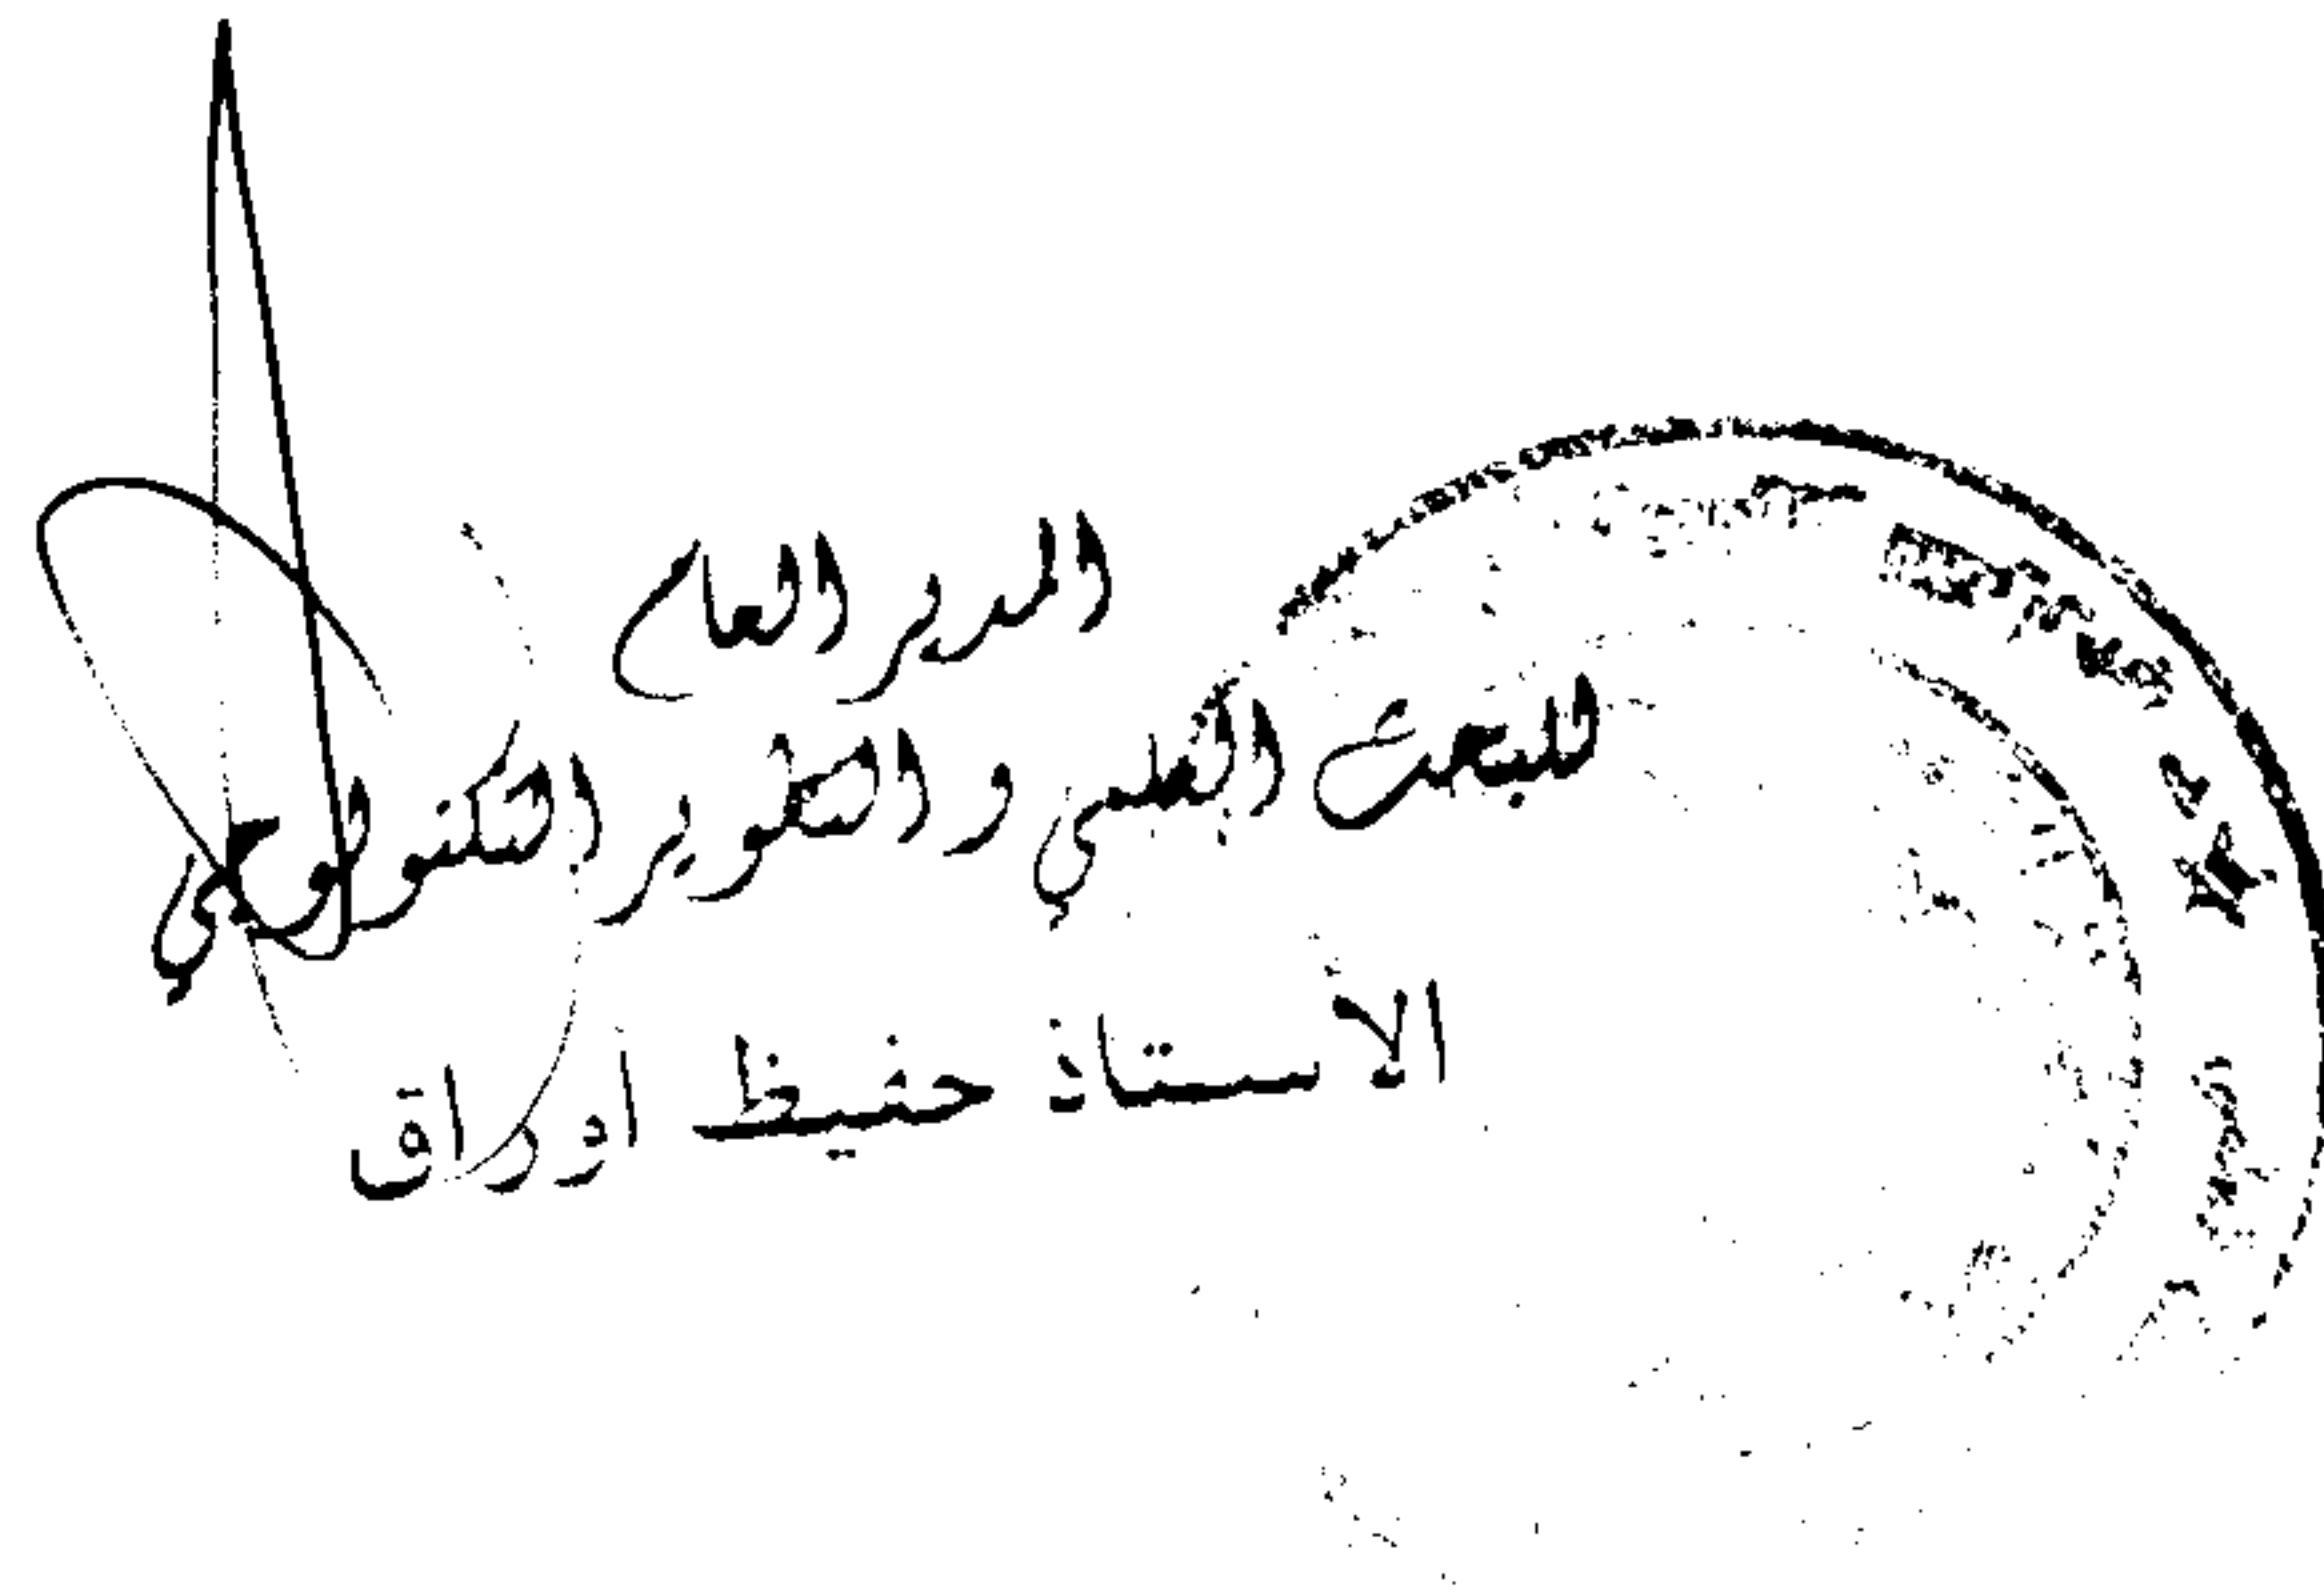 المدير العام
للبحث العلمي و التطوير التكنولوجي
الاستاذ حفيظ اوراق